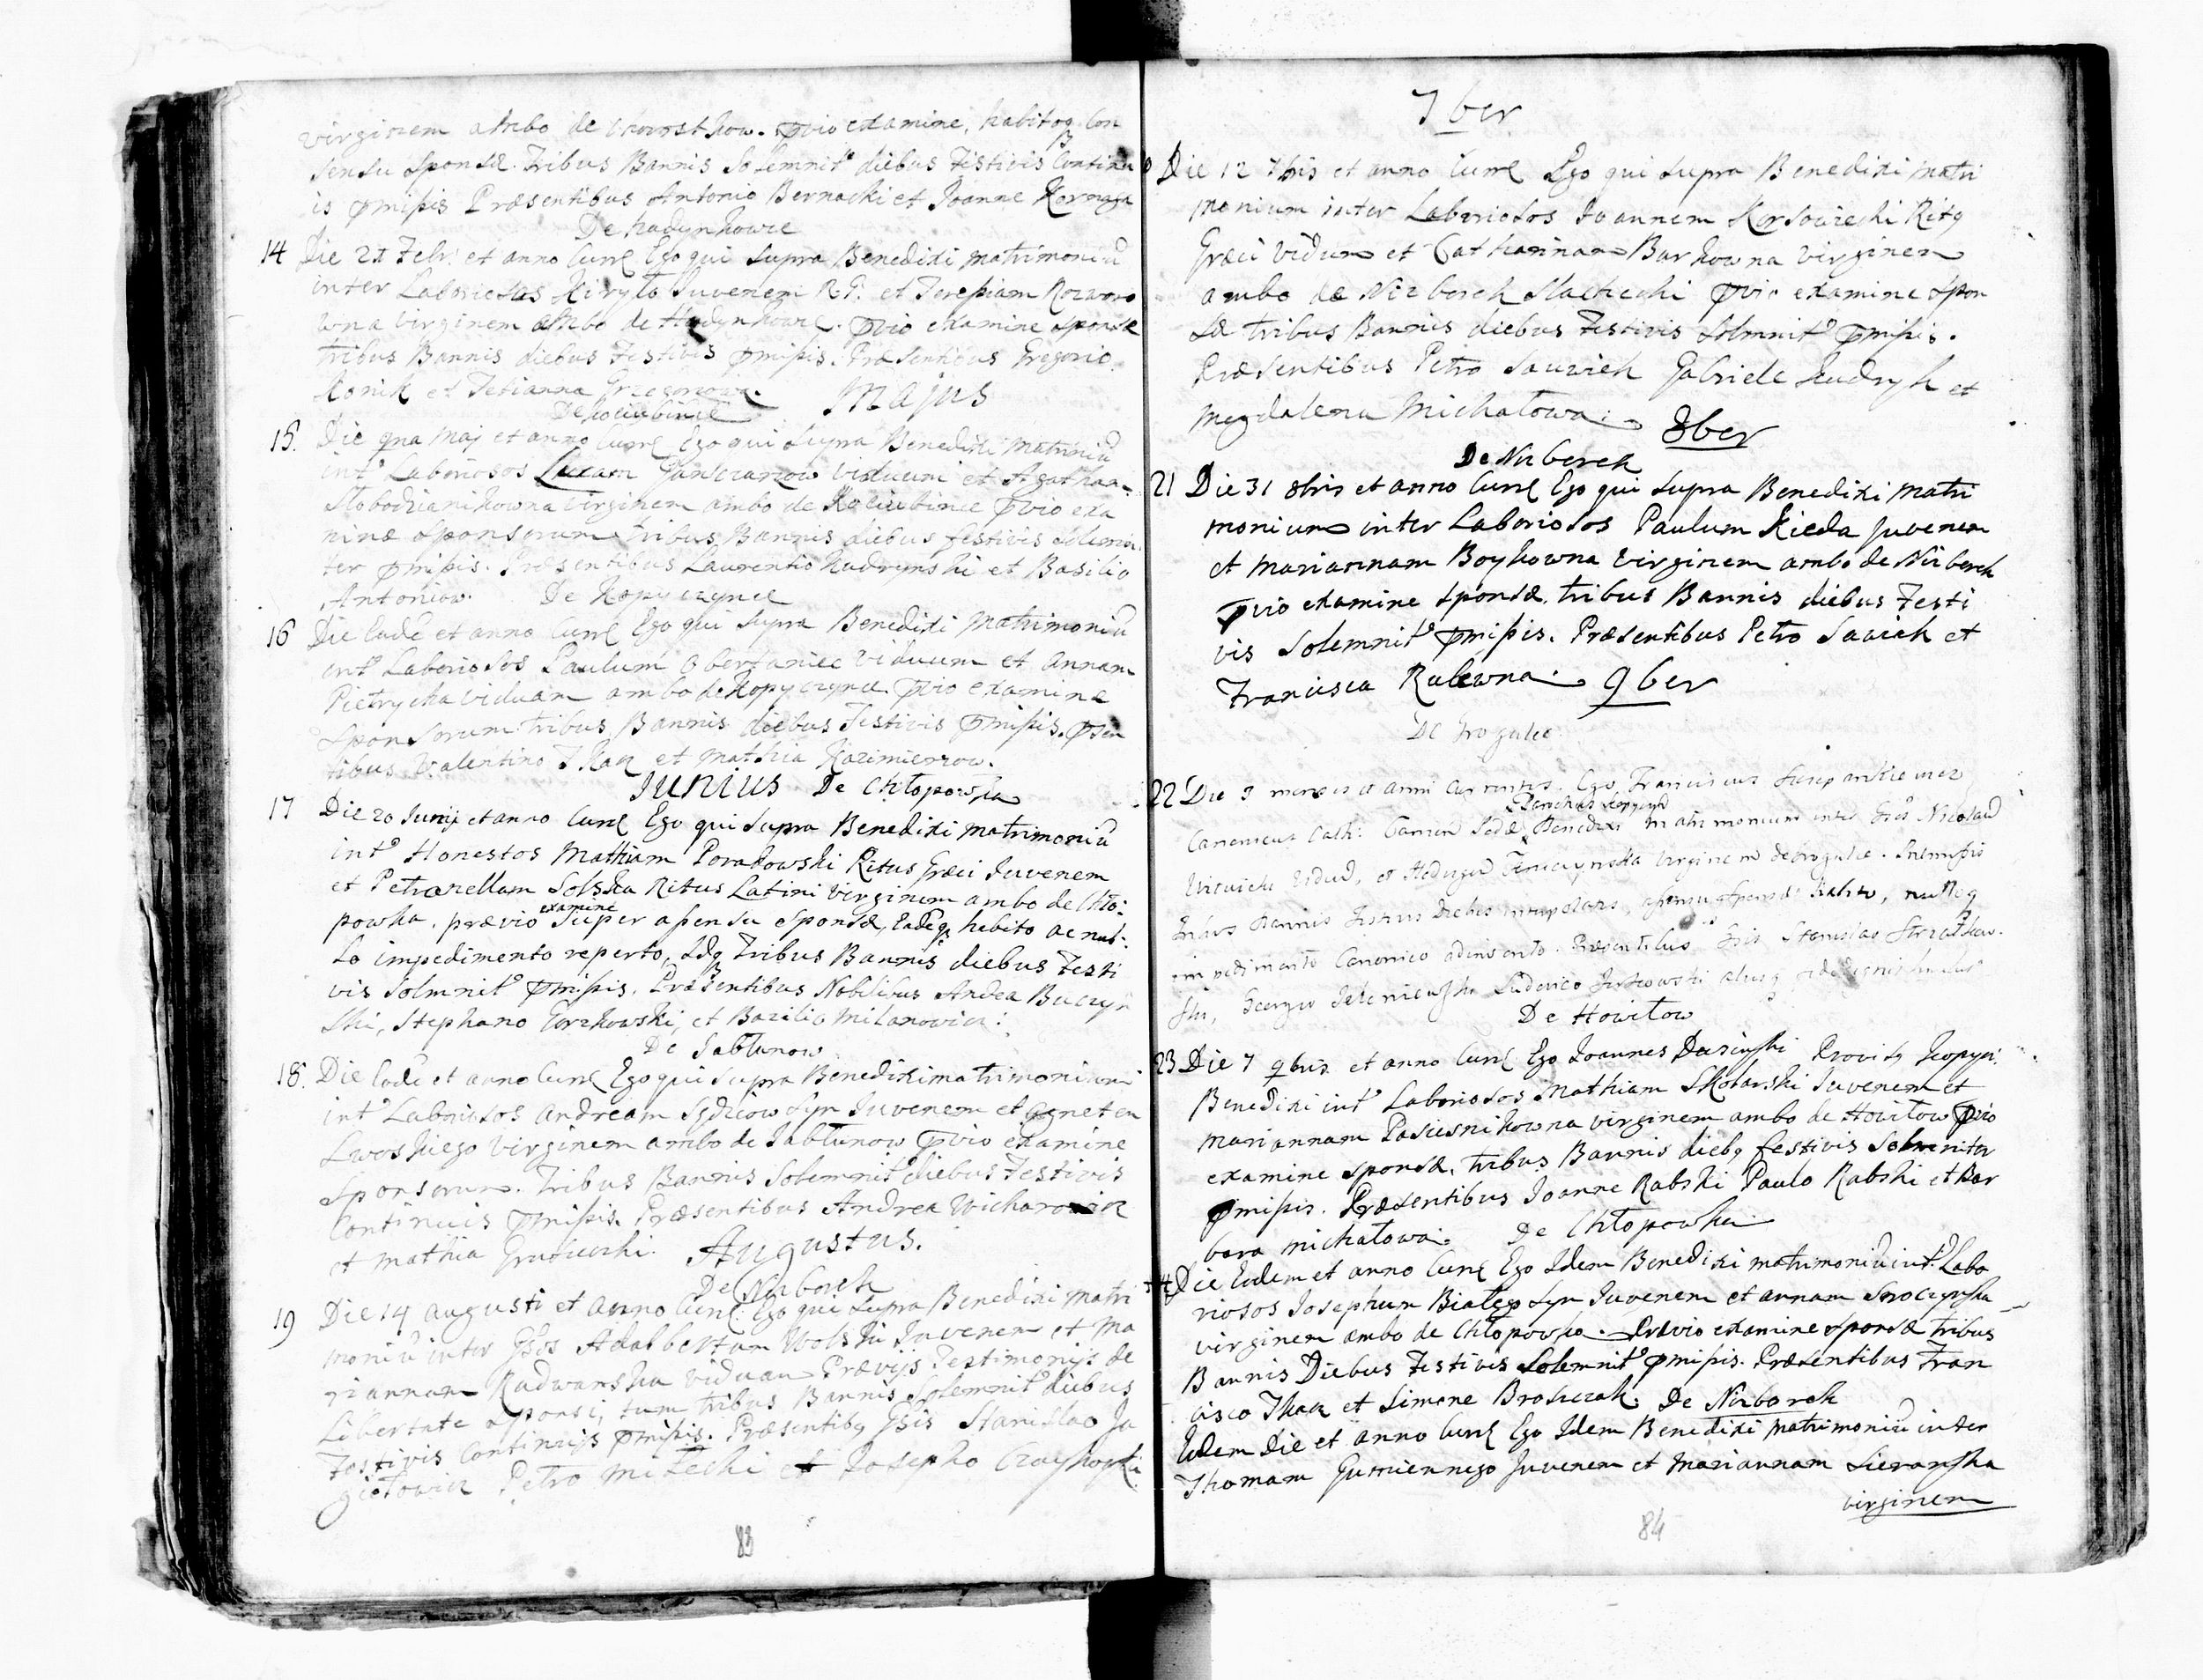 virginem ambo de                 . pvio examine, habitoq Con
sensu Sponsæ. Tribus Bannis Solemnitr diebus Festivis Continu
is pmissis Præsentibus Antonio Bernacki et Joanne Kornaga
De hadynkowce
14 Die 21 Febr: et anno Curr Ego qui Supra Benedixi matrimoniũ
inter Laboriosos Kiryło Juvenem R.G. et Teressiam
wna virginem ambo de Hadynkowce. pvio examine sponsæ
tribus Bannis diebus Festivis pmissis. Præsentibus Gregorio
Konik et Tetianna
Majus
De Kociubince
15. Die qna Maj et anno Curr Ego qui Supra Benedixi Matrimniũ
intr Laboriosos Lucam                viduum et Agatham
Slobodzianikowna virginem ambo de Kociubince pvio exa
mine sponsorum tribus Bannis diebus festivis Solemni
ter pmissis. Presentibus Laurentio Kudrynski et Basilio
Antoniow. De Kopyczynce
16 Die Eade et anno Curr Ego qui Supra Benedixi matrimoniũ
intr Laboriosos Paulum Obertaniec viduum et annam
Pietrycha viduam ambo de Kopyczynce pvio examine
Sponsorum tribus Bannis diebus Festivis pmissis. psen
tibus Valentino Tkacz et Mathia Kazimierzow.
Junius De Chłopowka
17 Die 20 Junij et anno Curr Ego qui Supra Benedixi Matrimoniũ
intr Honestos Mathiam Porakowski Ritus Græci Juvenem
et Petronellam Solska Ritus Latini Virginem ambo de Chło:
powka. prævio examine Super assensu Sponsæ, Eadeq habito ac nul:
lo impedimento reperto, Idq Tribus Bannis diebus Festi
vis Solmnitr pmissis. Præsentibus Nobilibus Andrea Buczyn
ski, Stephano Gorzkowski, et Bazilio Milanowicz:
De Jabłunow
18. Die Eade et anno Curr Ego qui Supra Benedixi matrimonium
intr Laboriosos Andream Sędziow Syn Juvenem et Agneten
Lwoskiego virginem ambo de Jabłunow pvio examine
Sponsorum. Tribus Bannis Solemnitr diebus Festivis
Continuis pmissis. Præsentibus Andrea
et Mathia
Augustus.
De Nizborek
19 Die 14 augusti et anno Curr. Ego qui Supra Benedixi Matri
moniũ inter Gsos Adalbertum Wolski Juvenem et Ma
riannam Radwanska viduam Prævijs Testimonijs de
Libertate sponsi, tum tribus Bannis Solemnitr diebus
Festivis Continuijs pmissis. Præsentibq Gsis Stanislao Ja
giełowicz Petro                et Josepho
83
7ber
Die 12 7bris et anno Curr Ego qui Supra Benedixi Matri
monium inter Laboriosos Joannem                Ritq
Græci Viduum et Catharinam Barkowna Virginem
ambo de Nizborek Slachecki pvio examine Spon
sæ tribus Bannis diebus Festivis Solmnitr pmissis.
Præsentibus Petro Sawich Gabriele Kudryk et
Magdalena Michałowa.
8ber
De Nizborek
21 Die 31 8bris et anno Curr Ego qui Supra Benedixi Matri
monium inter Laboriosos Paulum Kieda Juvenem
et Mariannam Boykowna virginem ambo de Nizborek
pvio examine sponsæ. tribus Bannis diebus Festi
vis Solemnitr pmissis. Præsentibus Petro Sawich et
Francisca Rulewna. 9ber
De Probużne
22 Die 3 mensis et anni currentis. Ego Franciscus
Canonicus Cath: Camen                Benedixi matrimonium inter Gsos Nicolaũ
                Viduũ, et Hedvigũ                Virginem de                . Præmissis
tribus Bannis Festivis Diebus                , assensu Sponsæ habito, nulloq
impedimento Canonico adinvento. Præsentibus Gsis Stanislao
ski, Georgio                Ludovico                alysq fide dignis
De Howiłow
23 Die 7 9bris et anno Curr Ego Joannes                Kopycz:
Benedixi intr Laboriosos Mathiam Skolarski Juvenem et
Mariannam Pasiesnikowna virginem ambo de Howiłow pvio
examine sponsæ. tribus Bannis diebq festivis Solmniter
pmissis. Præsentibus Joanne Rabski Paulo Rabski et Bar
bara Michałowa. De Chłopowka
24 Die Eodem et anno Curr Ego Idem Benedixi matrimoniũ intr Labo
riosos Josephum Białego Syn Juvenem et annam
virginem ambo de Chłopowka. Prævio examine sponsæ tribus
Bannis Diebus Festivis Solemnitr pmissis. Præsentibus Fran
cisco Tkacz et Simone                De Nizborek
Eodem Die et anno Curr Ego Idem Benedixi matrimoniũ inter
Thomam Gumiennego Juvenem et Mariannam Sieranska
virginem
84